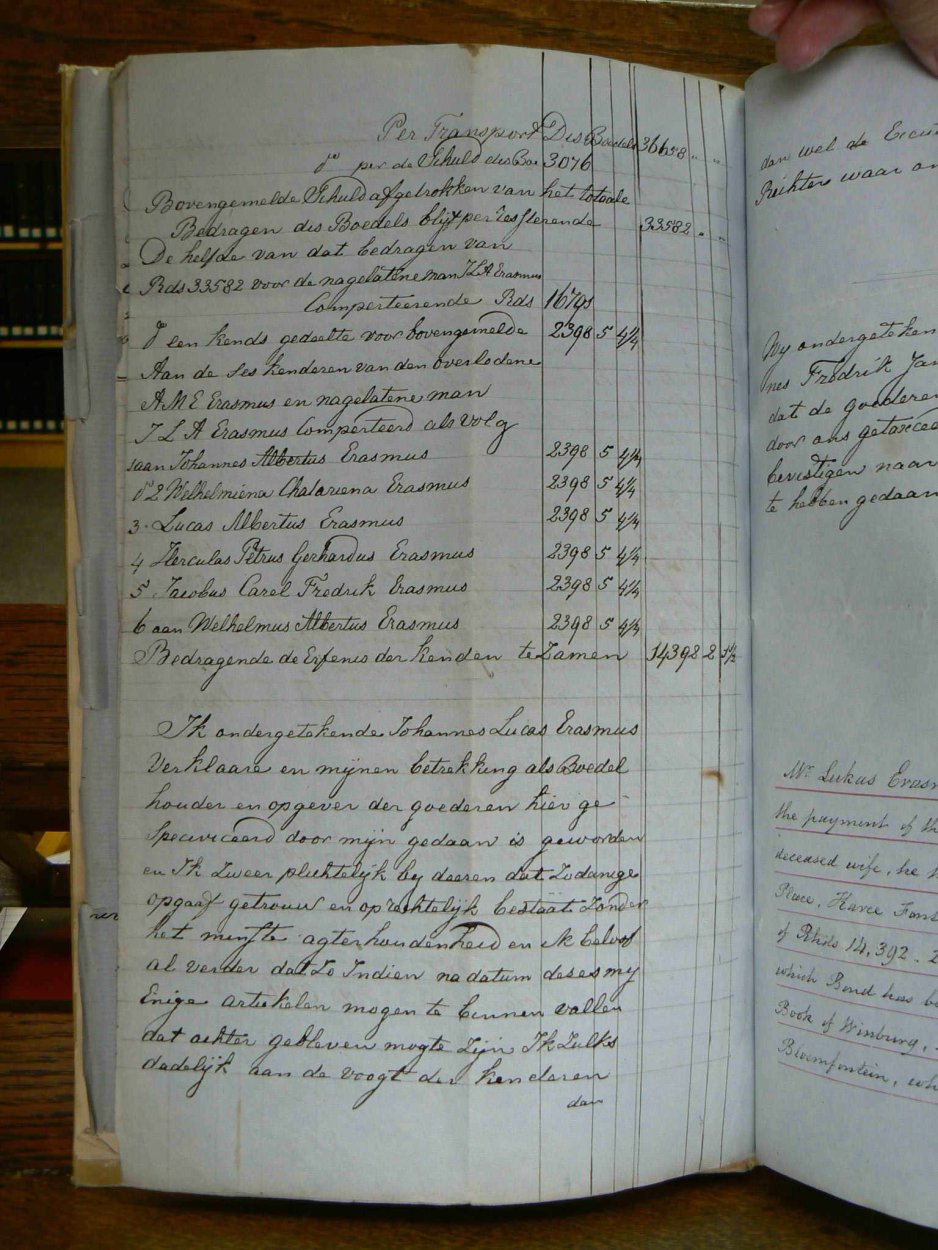 Per Transport Des Boedels 36658 " "
do per de Schuld des Boe 3076
Bovengemelde Schuld afgetrokken van het totaale
Bedragen des Boedels blijft per resterende 33582 " "
De helfde van dat bedragen van
Rds 33582 voor de nagelatene man J L A Erasmus
Comperteerende Rds 16791
do een kends gedeelte voor bovengemelde 2398 5 4/4
Aan de ses kenderen van den overledene
A M E Erasmus en nagelatene man
J L A Erasmus Comperteerd als volg
1 aan Johannes Albertus Erasmus 2398 5 4/4
do 2 Welhelmiena Chatariena Erasmus 2398 5 4/4
3 - Lucas Albertus Erasmus 2398 5 4/4
4 Herculas Petrus Gerhardus Erasmus 2398 5 4/4
5 - Jacobus Carel Fredrik Erasmus 2398 5 4/4
6 aan Welhelmus Albertus Erasmus 2398 5 4/4
Bedragende de Erfenis der kenden te Zamen 14392 2 1½
Ik ondergetekende Johannes Lucas Erasmus
Verklaare en mijnen betrekking als Boedel
houder en opgever der goederen hier ge
Speceviceerd door mijn gedaan is geworden
en Ik Zweer plichtelijk by deesen dat Zodanige
opgaaf getrouw en oprechtelijk bestaat Zonder
het minste agterhoudenheid en ik beloof
al verder dat Zo Indien na datum deses my
Enige artiekelen mogen te binnen vallen
dat achter gebleven mogte Zijn Ik Zulks
dadelijk aan de voogt der kenderen
dan
dan wel de
Richters waar
Wy ondergeteken
nes Fredrik Jan
dat de goederen
door ons getaxceerd
bevestigen naar
te hebben gedaan
Mr. Lukas Erasm
the payment of th
deceased wife, he
Place,
of Rhds 14,392 -
which Bond has be
Book of Winburg,
Bloemfontein, wh